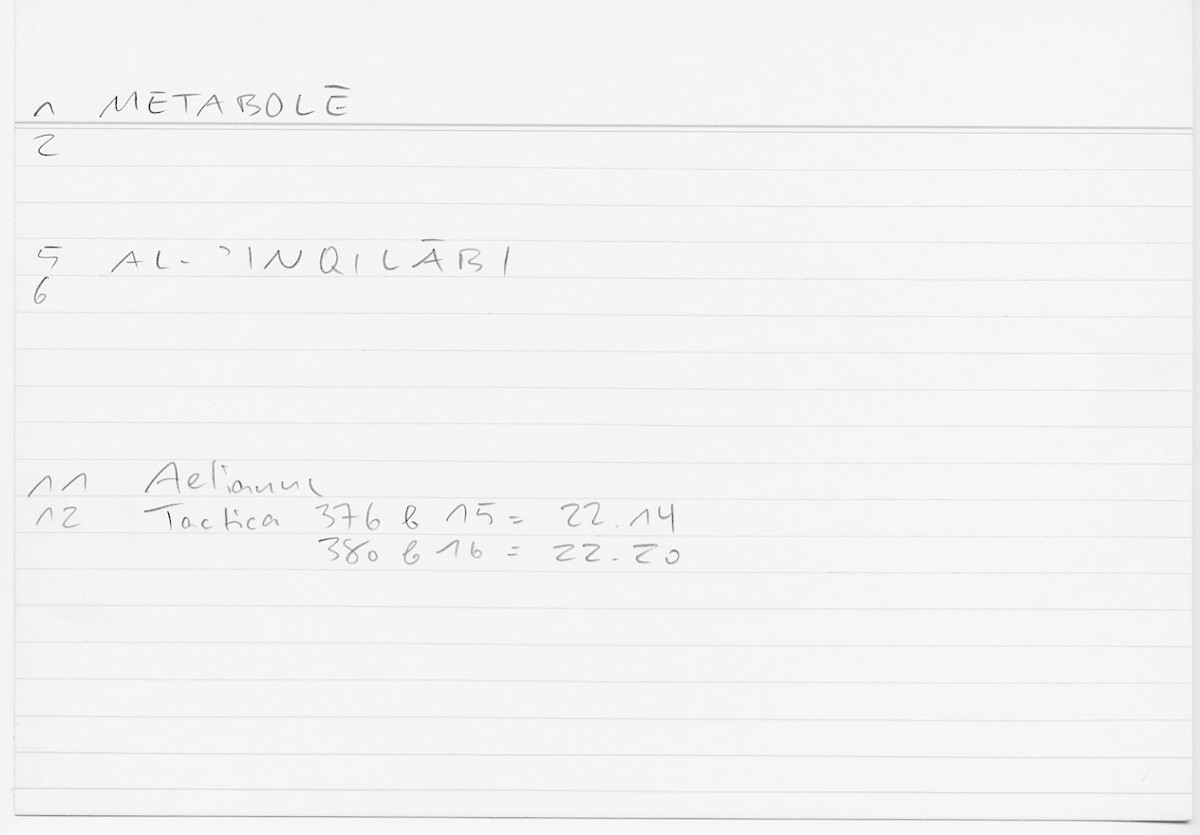 1 METABOLĒ
2
5 AL-ʾINQILĀBI
6
11 Aelianus
12 Tactica 376 b 15 = 22.14
380 b 16 = 22.20